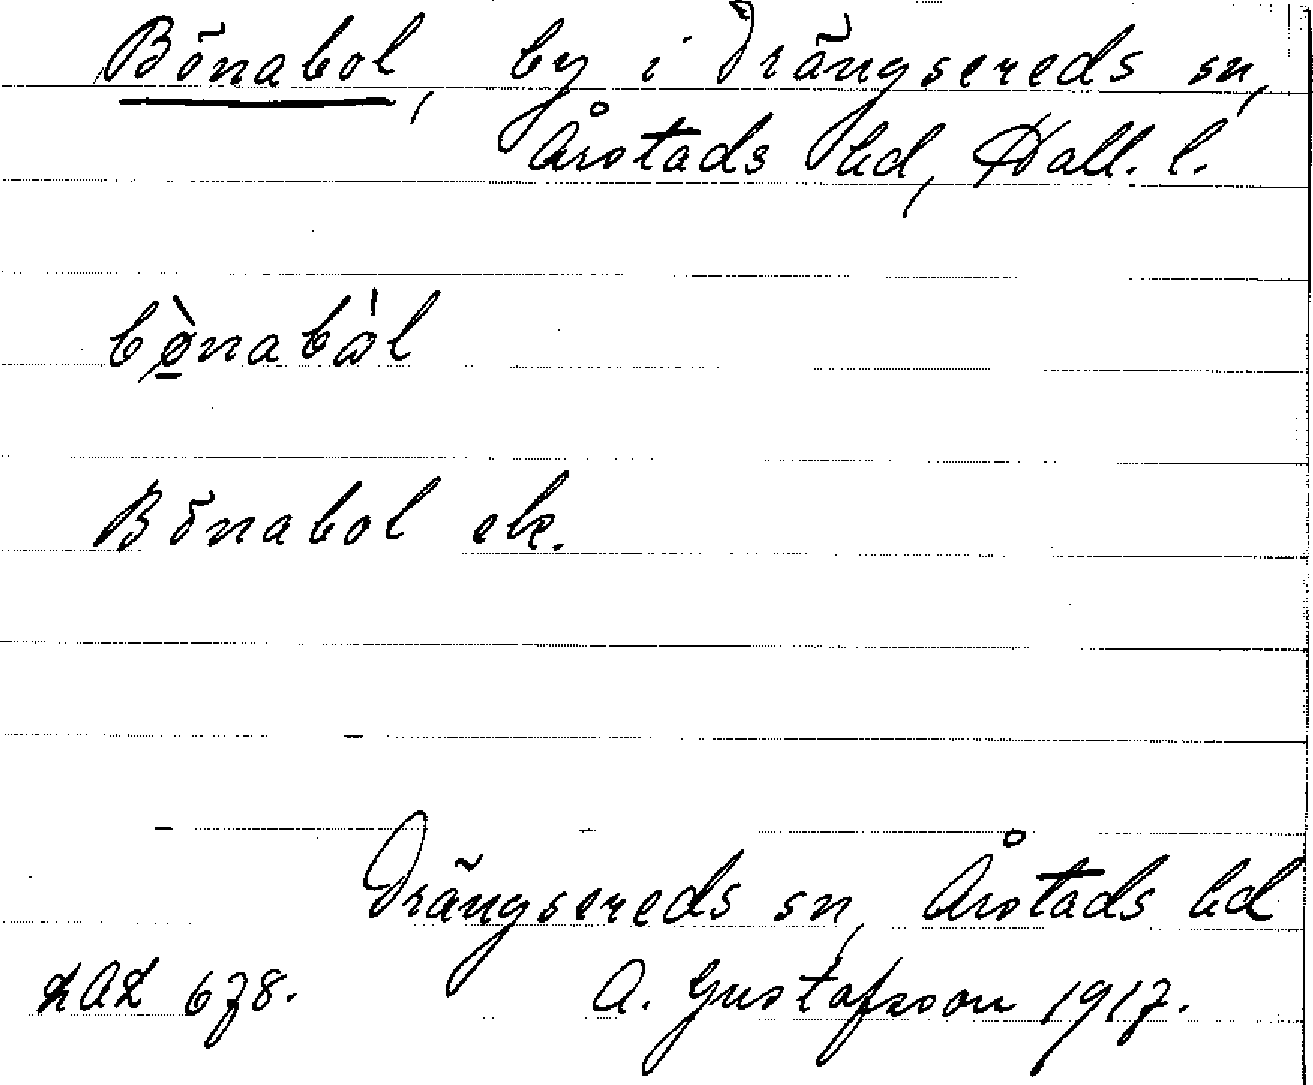 Bönabol, by i Drängsereds sn,
Årstads hd, Hall. l.
bø̠̀nabω̍l
Bönabol ek.
Drängsereds sn, Årstads hd
LAL 678. A. Gustafsson 1917.